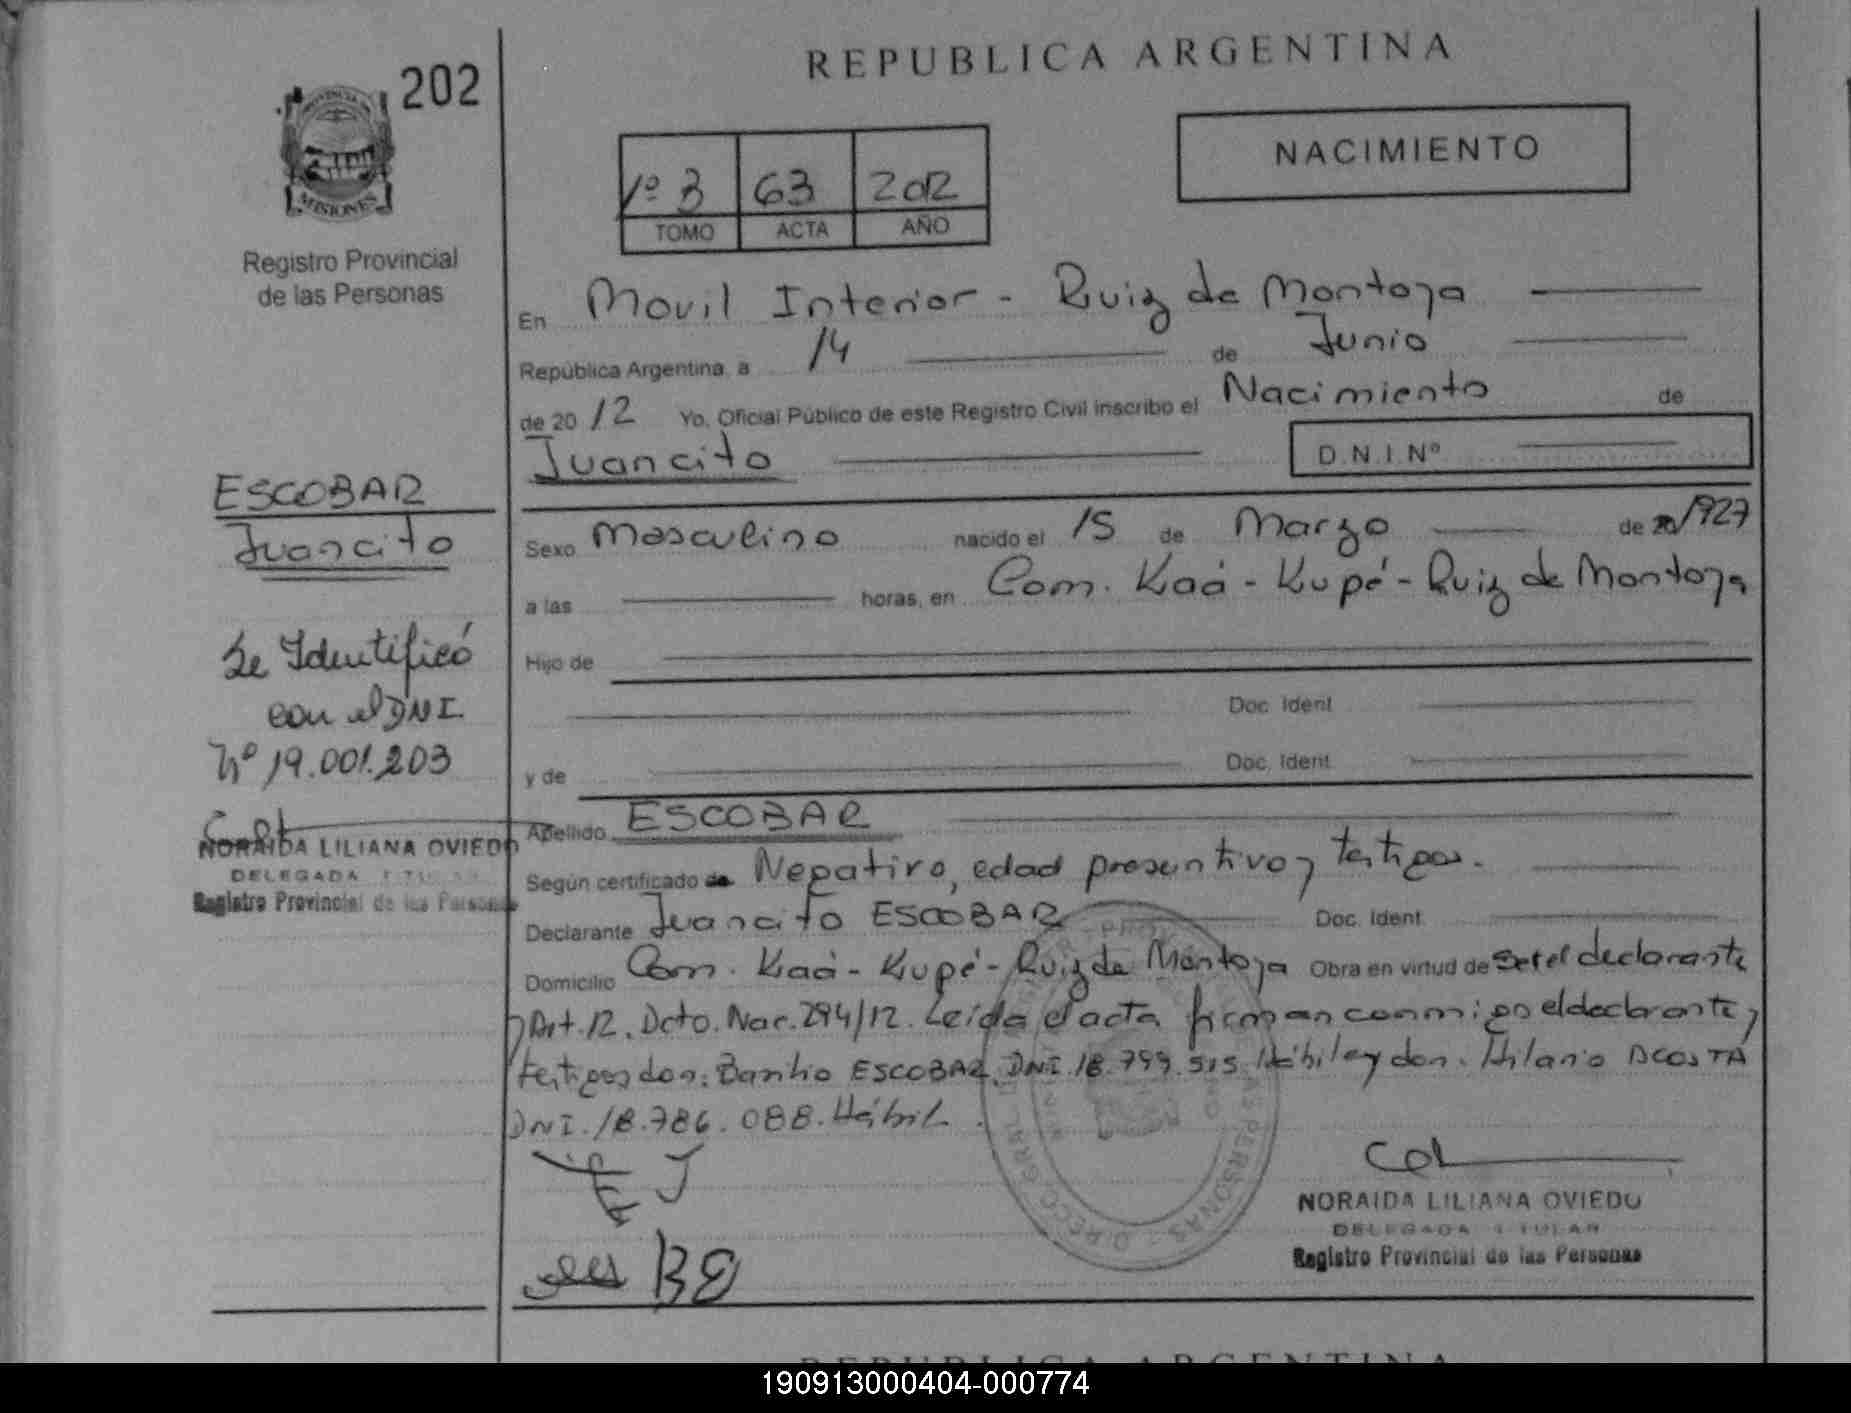 REPUBLICA ARGENTINA
202
PROVINCIA DE
MISIONES
Registro Provincial
de las Personas
1º 3 63 2012
TOMO ACTA AÑO
NACIMIENTO
En Movil Interior - Ruiz de Montoya
República Argentina, a 14 de Junio
de 20 12 Yo, Oficial Público de este Registro Civil inscribo el Nacimiento de
Juancito D.N.I.Nº
ESCOBAR
Juancito
Sexo Masculino nacido el 15 de Marzo de 1927
a las horas, en Com. Kaá - Kupé - Ruiz de Montoya
Hijo de
Doc. Ident
y de Doc. Ident
Se Identificó
con el DNI.
Nº 19.001.203
NORAIDA LILIANA OVIEDO
DELEGADA
Registro Provincial de las Personas
Apellido ESCOBAR
Según certificado de Negativo, edad presuntiva y testigos.
Declarante Juancito ESCOBAR Doc. Ident.
Domicilio Com. Kaá - Kupé - Ruiz de Montoya Obra en virtud de Ser el declarante
y Art. 12. Dcto. Nac. 294/12. Leída el acta firman conmigo el declarante y
testigos don: Basilio ESCOBAR, DNI. 18.799.515 Hábil y don. Hilario ACOSTA
DNI. 18.786.088. Hábil.
NORAIDA LILIANA OVIEDO
DELEGADA TITULAR
Registro Provincial de las Personas
REPUBLICA ARGENTINA
190913000404-000774